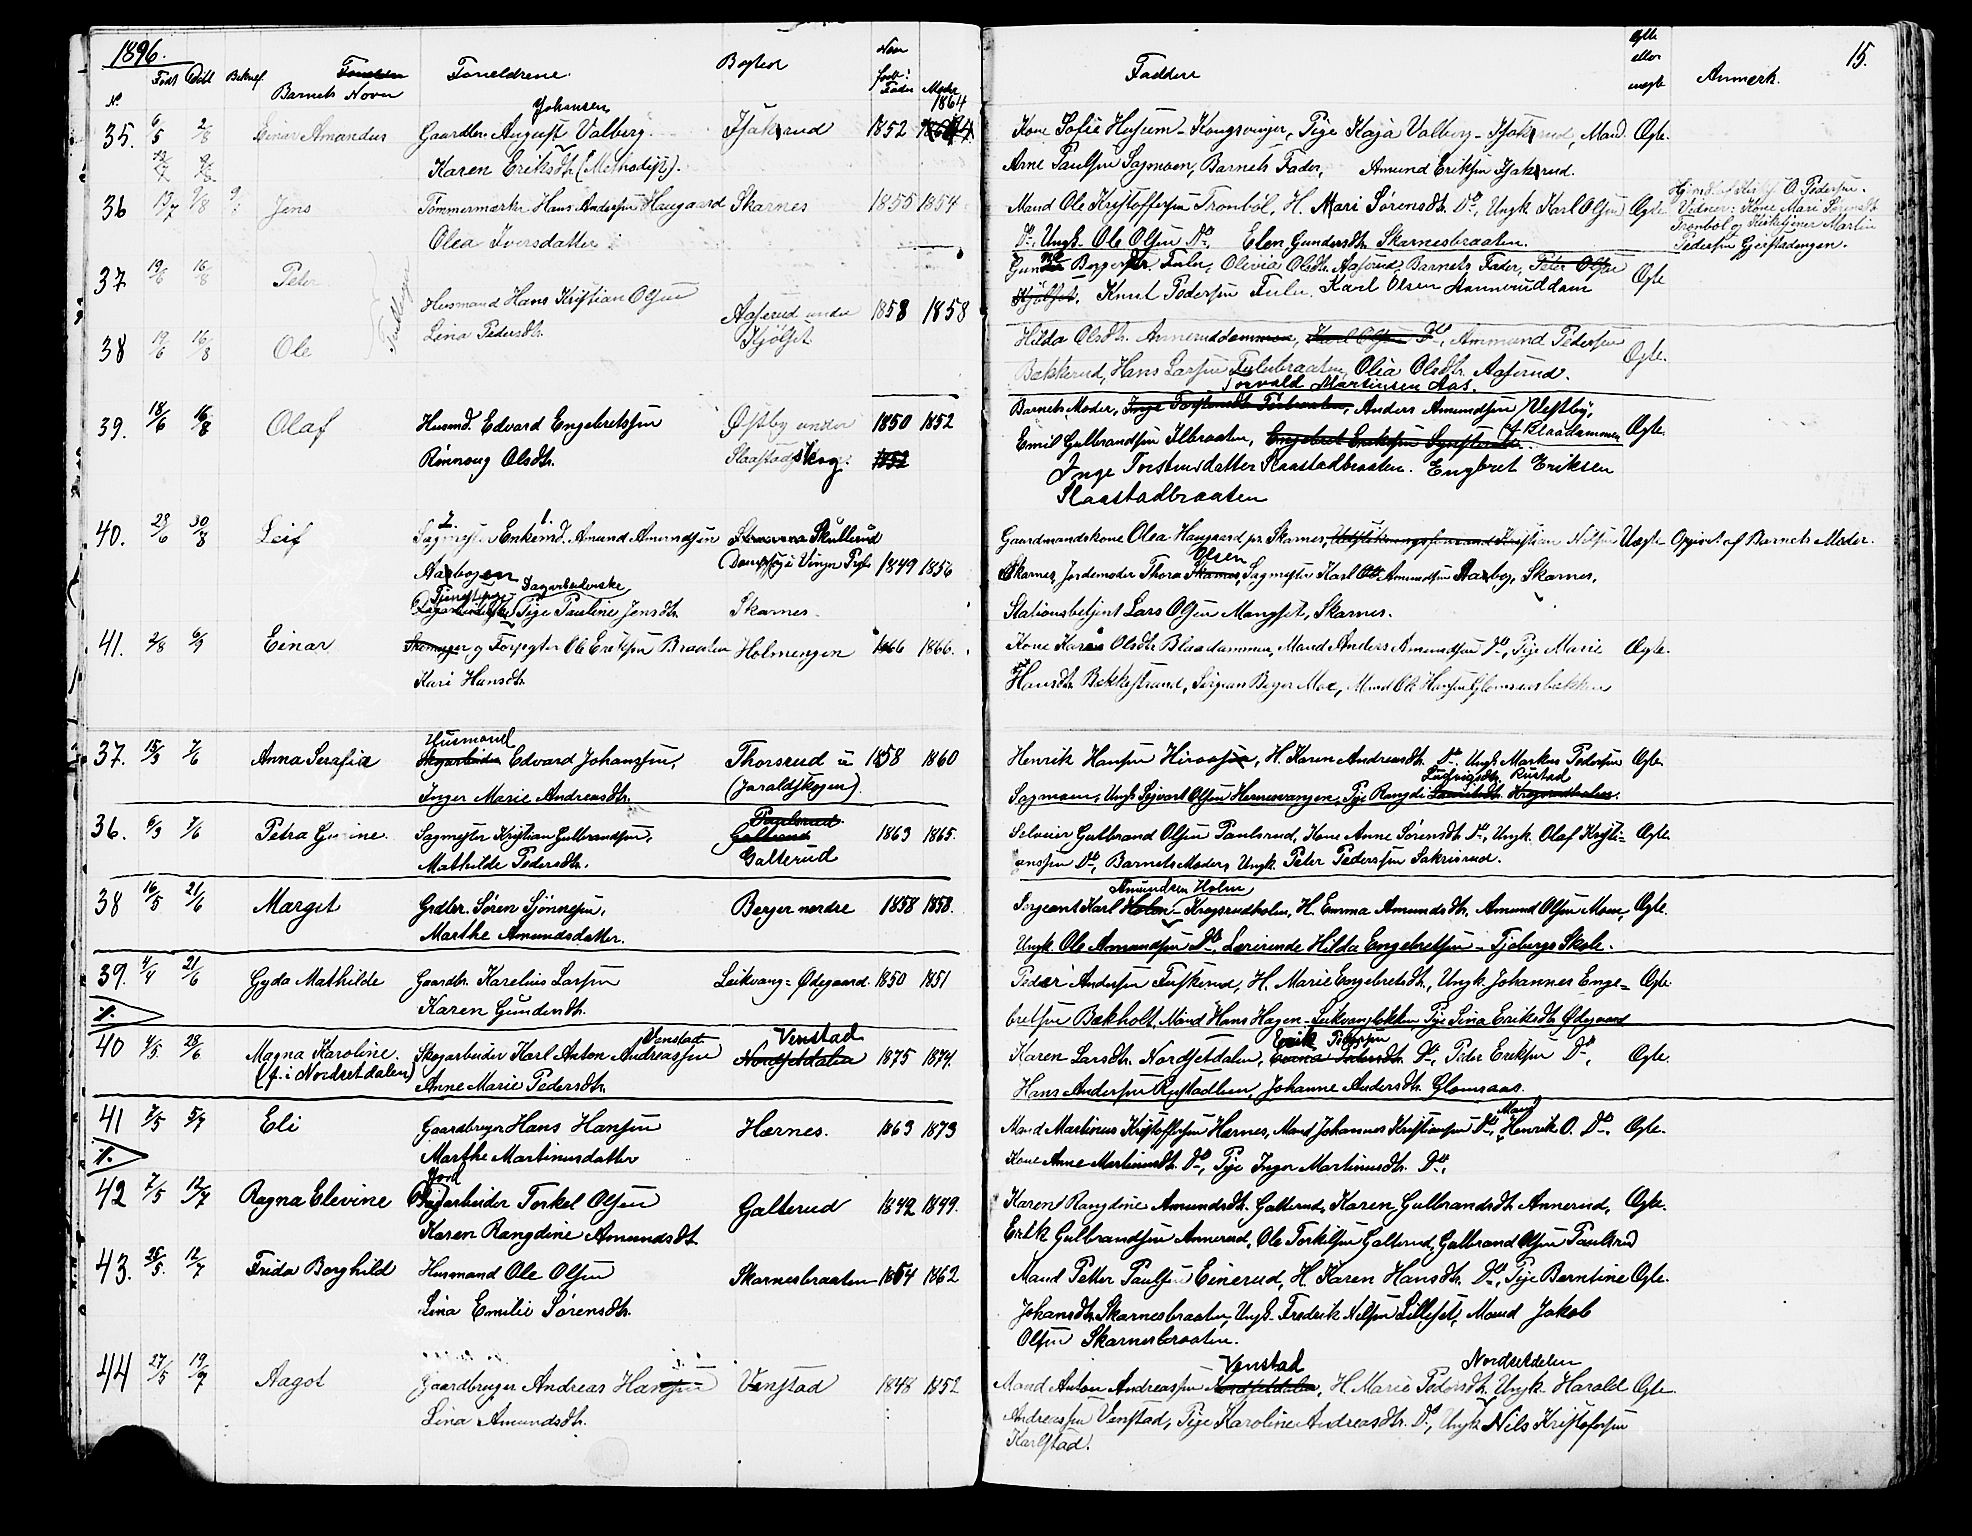 1896.
15.
Født Døbt Bekræf Barnets Navn Forældrene. Bosted Naar født: Fader Moder Faddere Ægte eller uægte Anmærk.
No
Johansen 1864
35. 6/5 2/8 Einar Amandus Gaardbr. August Valberg. Isakrud 1852 Kone Sofie Husum - Kongsvinger, Pige Kaja Valberg - Isakrud, Mand. Ægte.
Karen Eriksdtr. (Methodist). Arne Paulsen Sagmoen, Barnets Fader, Amund Eriksen Isakrud.
36 13/7 2/8 Jens Tømmermærker Hans Andersen Haugaard Skarnes 1855 1854 Mand Ole Kristoffersen Tronbøl, H. Mari Sørensdtr. Do, Ungk. Karl Olsen Ægte
Olea Iversdatter Do, Ungk. Ole Olsen Do, Elen Gundersdtr. Skarnesbraaten.
Hjemdøbt O. Pedersen.
Vidner: Kone Mari Sørensdt.
Tronbøl og Kirketjener Martin
Pedersen Gjeistadengen.
37 19/6 16/8 Peter Olivia Olsdtr. Aaserud, Barnets Fader, Peter Olsen Ægte
Husmand Hans Kristian Olsen Aaserud under 1858 1858 Kjølset, Knut Pedersen Fulu. Karl Olsen Anneruddam
Lina Pedersdtr. Kjølset
Tvillinger
38 19/6 16/8 Ole Hilda Olsdtr. Anneruddammen, Karl Olsen Do, Ammund Pedersen Ægte.
Bækkerud, Hans Larsen Fulubraaten, Olia Olsdtr. Aaserud.
Torvald Martinsen Aas.
39. 18/6 16/8 Olaf Husmd. Edvard Engebretsen Østby under 1850 1852 Barnets Moder, Inge Torstensdtr. Anders Amundsen Vestby, Ægte.
Rønnaug Olsdtr. Slaastadskog. 1852 Emil Gulbrandsen Ilbraaten, Engebret Eriksen
Inge Torstensdatter Slaastadbraaten. Engbret Eriksen
Slaastadbraaten
40. 28/6 30/8 Leif Sagmest. Enkemd. Amund Amundsen Skullerud Gaardmandskone Olea Haugaard pr. Skarnes, Kristian Nilsen Uægte Opgivet af Barnets Moder.
Aasbogen Dampsag i Vinger Præst 1849 1856 Skarnes, Jordemoder Thora Olsen Skarnes, Sagmester Karl Amundsen Aasbog, Skarnes,
Tjenestepige Dagarbeiderske Pige Pauline Jensdtr. Skarnes. Stationsbetjent Lars Olsen Mangset, Skarnes.
41. 2/8 6/9 Einar Skomager og Forpagter Ole Eriksen Braaten Holmengen 1866 1866. Kone Karen Olsdtr. Blaadammen, Mand Anders Amundsen Do, Pige Marie Ægte.
Kari Hansdtr. Hansdtr. Bækkestrand, Sersjan Berger Moe, Mand Ole Hansen Glomsaasbakken
Husmand
37. 15/3 7/6 Anna Serafia Skogarbeider Edvard Johanssen, Thorserud u 1858 1860 Henrik Hansen Hiraasen, H. Karen Andreasdtr. Do, Ungk. Markus Pedersen Ægte.
Inger Marie Andreasdtr. (Jaraldskogen). Ludvigsdtr. Rustad
Sagmoen, Ungk. Sigvart Olsen Hernesvangen, Pige Ragndi Lauritsdtr. Krogsrudholm.
36. 6/3 7/6 Petra Gurine Sagmester Kristian Gulbrandsen, Paulsrud Galterud 1863 1865. Selveier Gulbrand Olsen Paulsrud, Kone Anne Sørensdtr. Do, Ungk. Olaf Kristi- Ægte
Mathilde Pedersdtr. Galterud anssen Do, Barnets Moder, Ungk. Peter Pederssen Sakrisrud.
Amundsen Holm
38 16/5 21/6 Margit Grdbr. Søren Sjønnesen, Berger nordre 1858 1858. Sergeant Karl Holm - Krogsrudholm, H. Emma Amundsdtr. Amund Olsen Moen, Ægte.
Marthe Amundsdatter. Ungk. Ole Amundsen Do, Lærerinde Hilda Engebretsen - Fjobergs Skole.
39. 4/4 21/6 Gyda Mathilde Gaardbr. Karelius Larsen Leikvang = Ødegaard. 1850 1851 Peder Andersen Fuskerud, H. Marie Engebretsdtr., Ungk. Johannes Enge= Ægte.
Karen Gundersdtr. bretsen Bækholt, Mand Hans Hagen - Leikvangbakken, Pige Lina Eriksdtr. Ødegaard
40 4/5 28/6 Magna Karoline. Skogarbeider Karl Anton Andreassen Venstad Nordsetdalen Venstad 1875 1874. Karen Larsdtr. Nordsetdalen, Erik Peterssen Do, Peter Eriksen Do, Ægte.
(f. i Nordsetdalen) Anne Marie Pedersdtr. Hans Andersen Rustadlien, Johanne Andersdtr. Glomsaas.
41 7/5 5/7 Eli Gaardbruger Hans Hansen Hernes. 1863 1873 Mand Martinus Kristoffersen Hernes, Mand Johannes Kristiansen Do, Mand Henrik O. Do. Ægte.
Marthe Martinusdatter Kone Anne Martinusdtr. Do, Pige Inger Martinusdtr. Do.
Jord
42 7/5 12/7 Ragna Elevine Dagarbeider Torkel Olsen Galterud 1842 1849. Karen Rangdine Amundsdtr. Galterud, Karen Gulbrandsdtr. Annerud, Ægte.
Karen Rangdine Amundsdt. Erik Gulbrandsen Annerud, Ole Torkelsen Galterud, Gulbrand Olsen Paulsrud
43. 25/5. 12/7 Frida Borghild Husmand Ole Olsen Skarnesbraaten 1864 1862 Mand Petter Paulsen Einerud, H. Karen Hansdtr. Do, Pige Berntine Ægte.
Lina Emilie Sørensdtr. Johansdtr. Skarnesbraaten, Ungk. Fredrik Nilsen Lilleset, Mand Jakob
Olsen Skarnesbraaten.
44 27/5 19/7 Aagot Gaardbruger Andreas Hansen Venstad 1848 1852 Mand Anton Andreassen Nordsetdalen Venstad, H. Marie Pedersdtr. Nordsetdalen Ungk. Harald Ægte.
Lina Amundsdtr. Andreassen Venstad, Pige Karoline Andreasdtr. Do, Ungk. Nils Kristofersen
Karlstad.